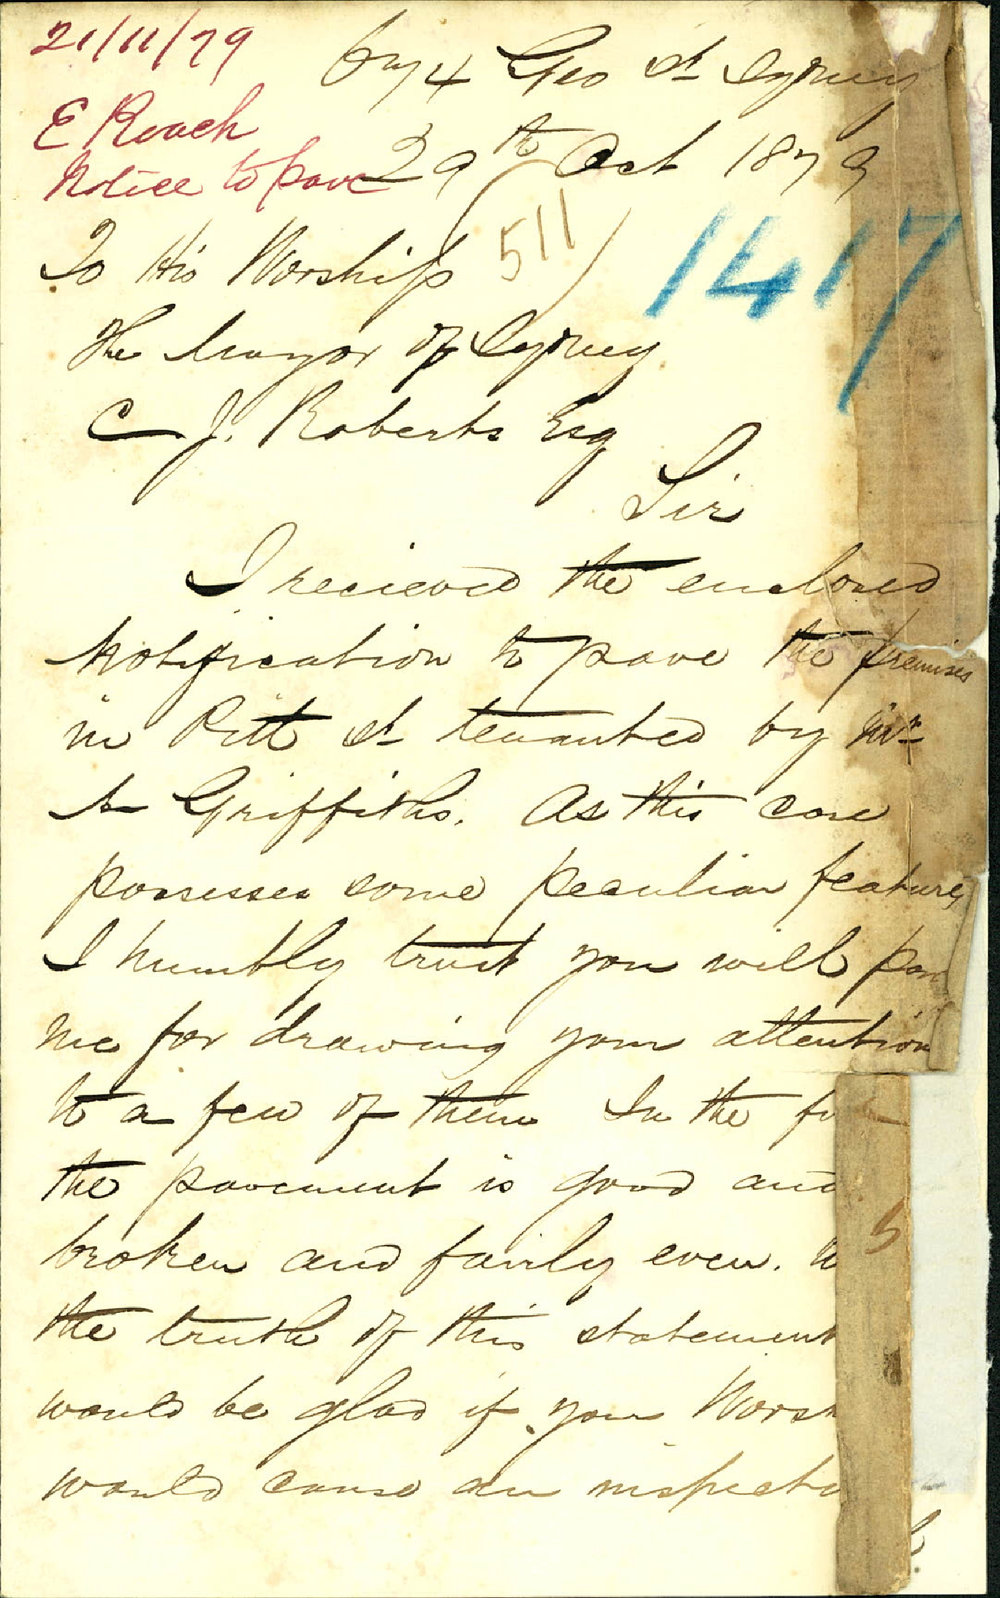 21/11/79
E Roach
Notice to pave
674 Geo St Sydney
29th Oct 1879
511
1417
To His Worship
The Mayor of Sydney
C J. Roberts Esq
Sir
I recieved the enclosed
Notification to pave the premises
in Pitt St tenanted by Mr
A Griffiths. As this case
possesses some peculiar features
I humbly trust you will par
me for drawing your attention
to a few of them In the fi
the pavement is good and
broken and fairly even.
the truth of this statement
would be glad if your Worsh
would cause an inspecto